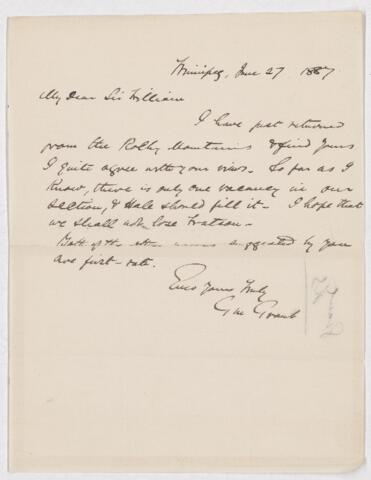 Winnipeg, June 27 1887
My Dear Sir William
I have just returned
from the Rocky Mountains & find yours
I quite agree with your views. So far as I
know, there is only one vacancy in our
section, & Hale should fill it. I hope that
we shall not lose Watson.
Both of the other names suggested by you
are first-rate.
Ever yours truly
G M Grant